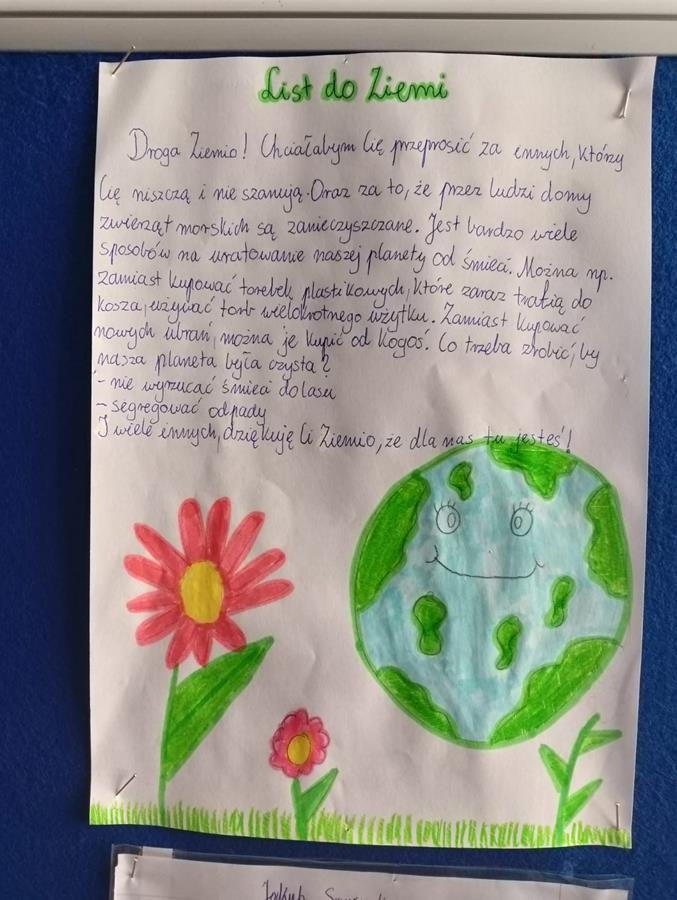 List do Ziemi
Droga Ziemio! Chciałabym Cię przeprosić za innych, którzy
Cię niszczą i nie szanują. Oraz za to, że przez ludzi domy
zwierząt morskich są zanieczyszczane. Jest bardzo wiele
sposobów na uratowanie naszej planety od śmieci. Można np.
zamiast kupować torebek plastikowych, które zaraz trafią do
kosza, używać torb wielokrotnego użytku. Zamiast kupować
nowych ubrań, można je kupić od kogoś. Co trzeba zrobić, by
nasza planeta była czysta?
- nie wyrzucać śmieci do lasu
- segregować odpady
I wiele innych, dziękuję Ci Ziemio, że dla nas tu jesteś!
Jakub